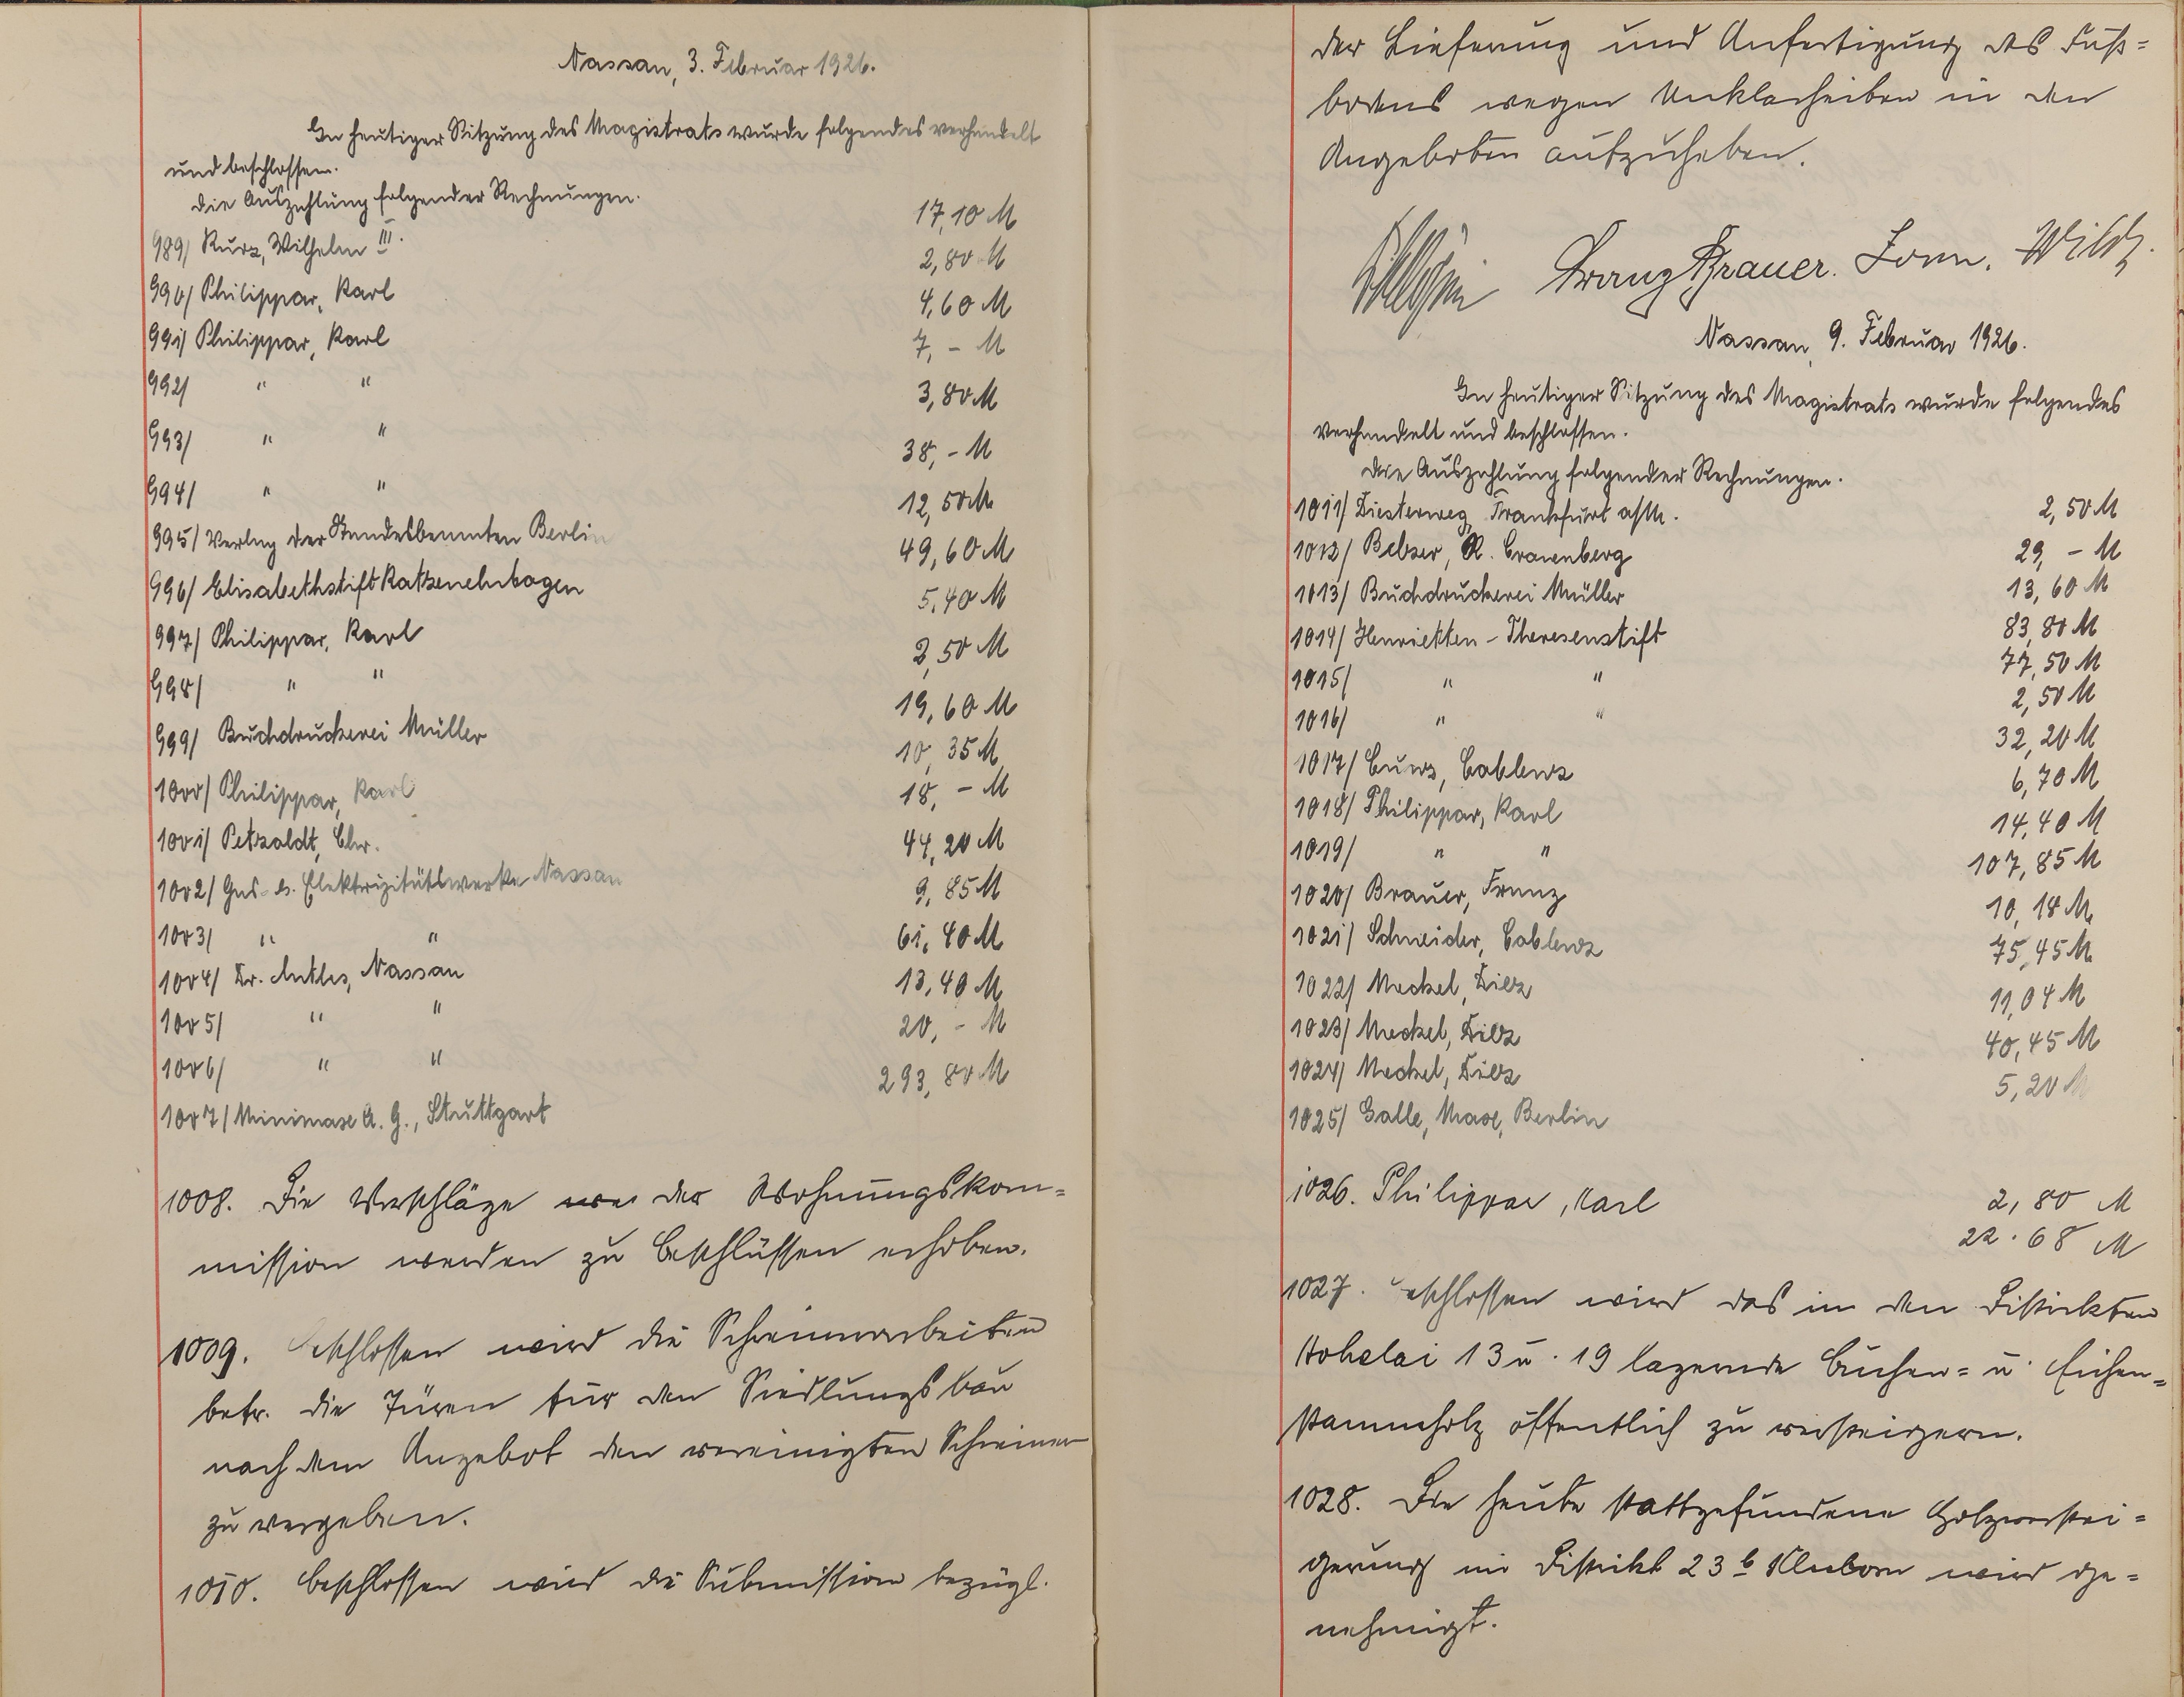 Nassau, 3. Februar 1926.
In heutiger Sitzung des Magistrats wurde folgendes verhandelt
und beschlossen.
die Auszahlung folgender Rechnungen.
989/ Kurz, Wilhelm III. 17,10 M
990/ Philippar, Karl 2,80 M
991/ Philippar, Karl 4,60 M
992/ " " 7,- M
993/ " " 3,80 M
994/ " " 38,- M
995/ Verlag der Standesbeamten Berlin 12,50 M
996/ Elisabethstift Katzenelnbogen 49,60 M
997/ Philippar, Karl 5,40 M
998/ " " 2,50 M
999/ Buchdruckerei Müller 19,60 M
1000/ Philippar, Karl 10,35 M
1001/ Petzoldt, Chr. 18,- M
1002/ Gas- u. Elektrizitätswerke Nassau 44,20 M
1003/ " " 9,85 M
1004/ Dr. Anthes, Nassau 61,40 M
1005/ " " 13,40 M
1006/ " " 20,- M
1007/ Minimax A. G., Stuttgart 293,80 M
1008. Die Vorschläge der Wohnungskom=
mission werden zu Beschlüssen erhoben.
1009. Beschlossen wird die Schreinerarbeiten
betr. die Türen für den Siedlungsbau
nach dem Angebot den vereinigten Schreiner
zu vergeben.
1010. Beschlossen wird die Submission bezügl.
der Lieferung und Anfertigung des Fuß=
bodens wegen Unklarheiten in den
Angeboten aufzuheben.
Franz Brauer.
Nassau, 9. Februar 1926.
In heutiger Sitzung des Magistrats wurde folgendes
verhandelt und beschlossen.
die Auszahlung folgender Rechnungen.
1011/ Diesterweg, Frankfurt a/M. 2,50 M
1012/ Cramberg 29,- M
1013/ Buchdruckerei Müller 13,60 M
1014/ Henrietten-Theresenstift 83,80 M
1015/ " " 77,50 M
1016/ " " 2,50 M
1017/ Coblenz 32,20 M
1018/ Philippar, Karl 6,70 M
1019/ " " 14,40 M
1020/ Brauer, Franz 107,85 M
1021/ Schneider, Coblenz 10,18 M
1022/ Meckel, Diez 75,45 M
1023/ Meckel, Diez 11,04 M
1024/ Meckel, Diez 40,45 M
1025/ Galle, Max, Berlin 5,20 M
1026. Philippar, Karl 2,80 M
22.68 M
1027. Beschlossen wird das in den Distrikten
Hohelai 13 u. 19 lagernde Buchen= u. Eichen=
stammholz öffentlich zu versteigern.
1028. Die heute stattgefundene Holzverstei=
gerung im Distrikt 23 b wird ge=
nehmigt.